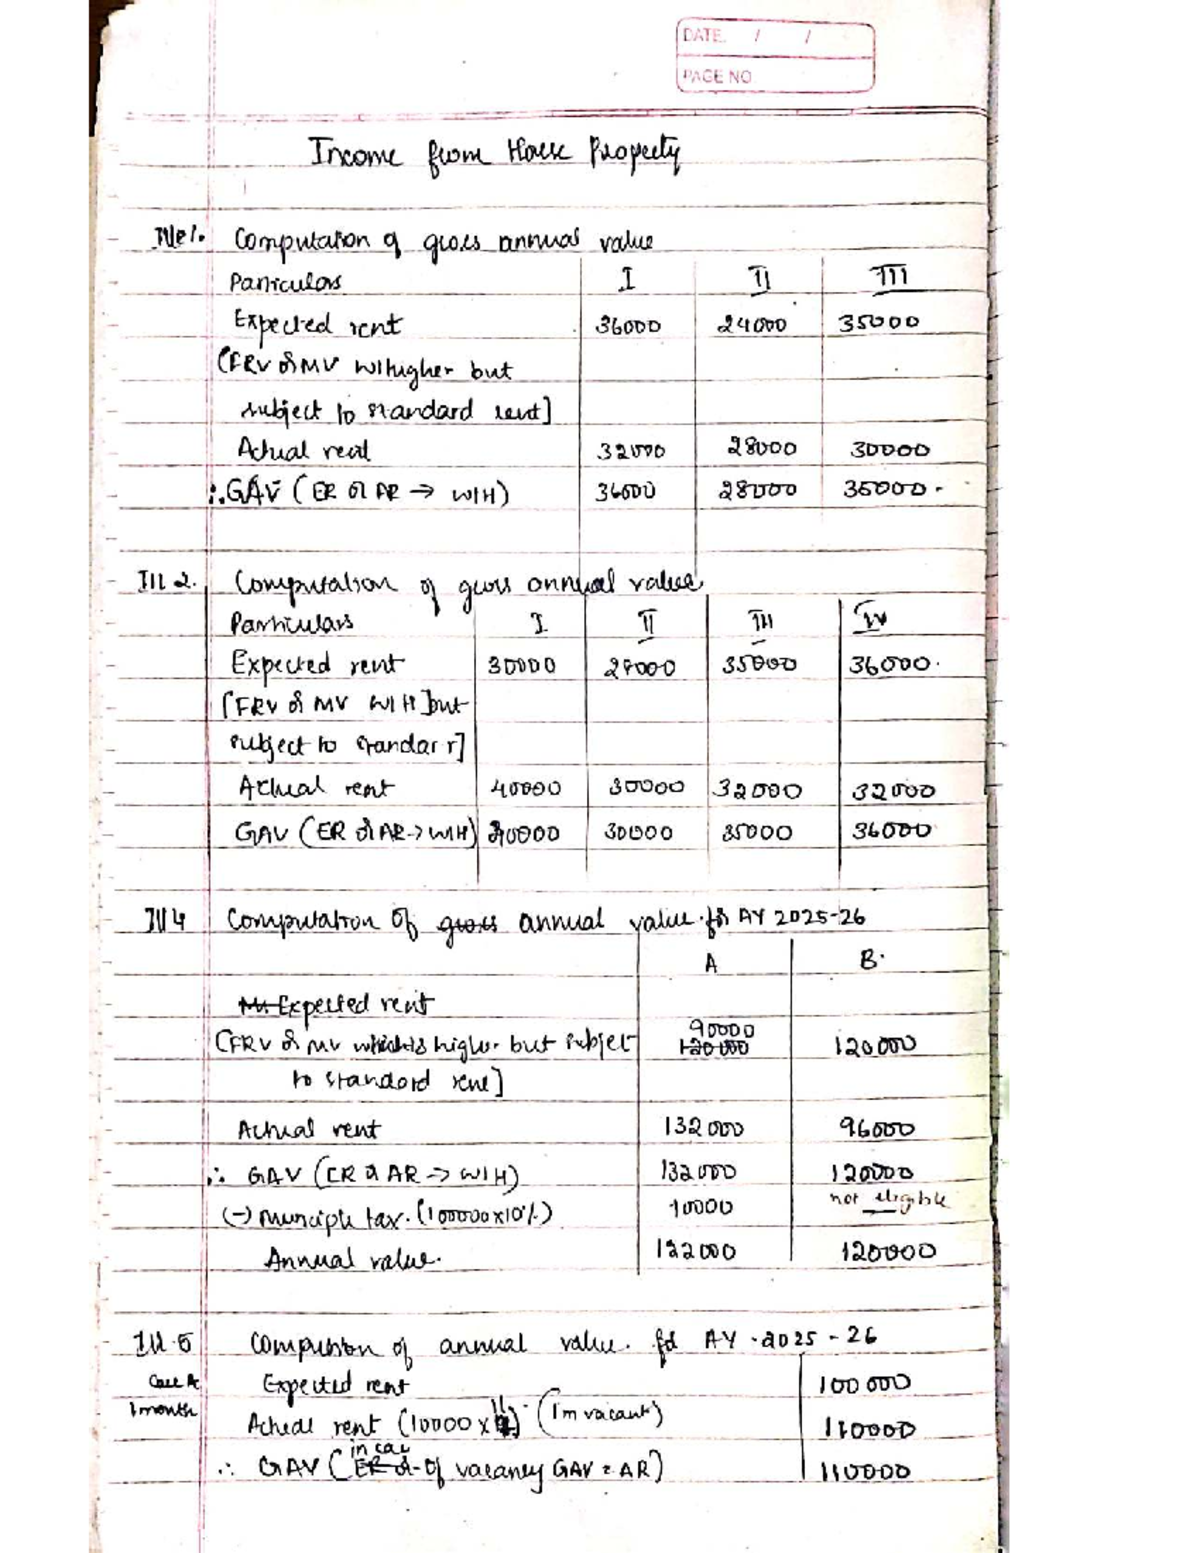 DATE / /
PAGE NO
Income from House Property
Ille 1. Computation of gross annual value
Particulars I II III
Expected rent 36000 24000 35000
(FRV or MV w/higher but
subject to standard rent]
Actual rent 32000 28000 30000
∴ GAV (ER or AR → W/H) 36000 28000 35000
Ill 2. Computation of gross annual value
Particulars I II III IV
Expected rent 30000 27000 35000 36000
[FRV or MV W/H] but
subject to standar r]
Actual rent 40000 30000 32000 32000
GAV (ER or AR → W/H) 40000 30000 35000 36000
Ill 4 Computation of gross annual value for AY 2025-26
A B
Expected rent
90000
(FRV or MV which is higher but subject 120000 120000
to standard rent]
Actual rent 132000 96000
∴ GAV (ER or AR → W/H) 132000 120000
(-) Municiple tax. (100000x10%) 10000 not eligible
Annual value. 122000 120000
Ill 5 Compution of annual value. for AY 2025-26
Case A Expected rent 100000
1 month Actual rent (10000 x 11) (1m vacant) 110000
in cas
∴ GAV (ER or of vacancy GAV = AR) 110000